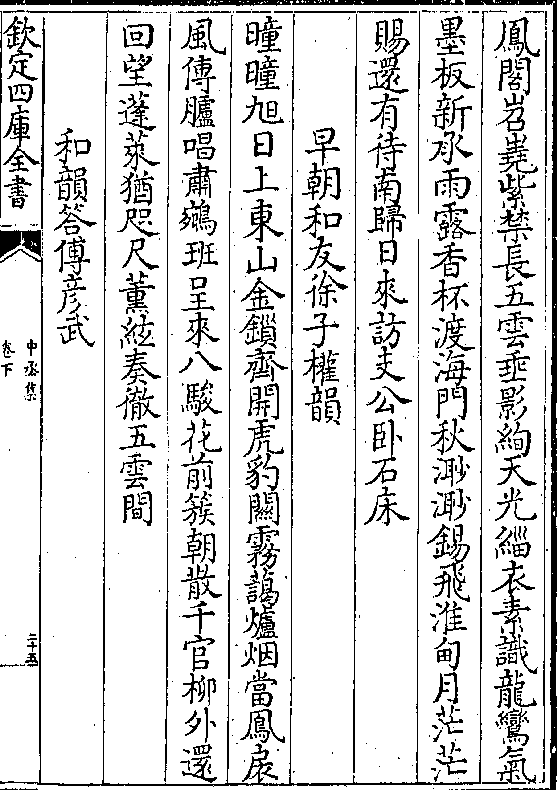 鳳閣岧嶤紫禁長五雲垂影絢天光緇衣素識龍鸞氣
墨板新承雨露香杯渡海門秋渺渺錫飛淮甸月茫茫
賜還有待南歸日來訪支公卧石床
早朝和友徐子權韻
曈曈旭日上東山金鎖齊開虎豹關霧藹爐烟當鳳扆
風傳臚唱肅鵷班呈來八駿花前簇朝散千官柳外還
回望蓬萊猶咫尺薰絃奏徹五雲間
和韻答傅彦武
欽定四庫全書
中丞集
卷下
二十五